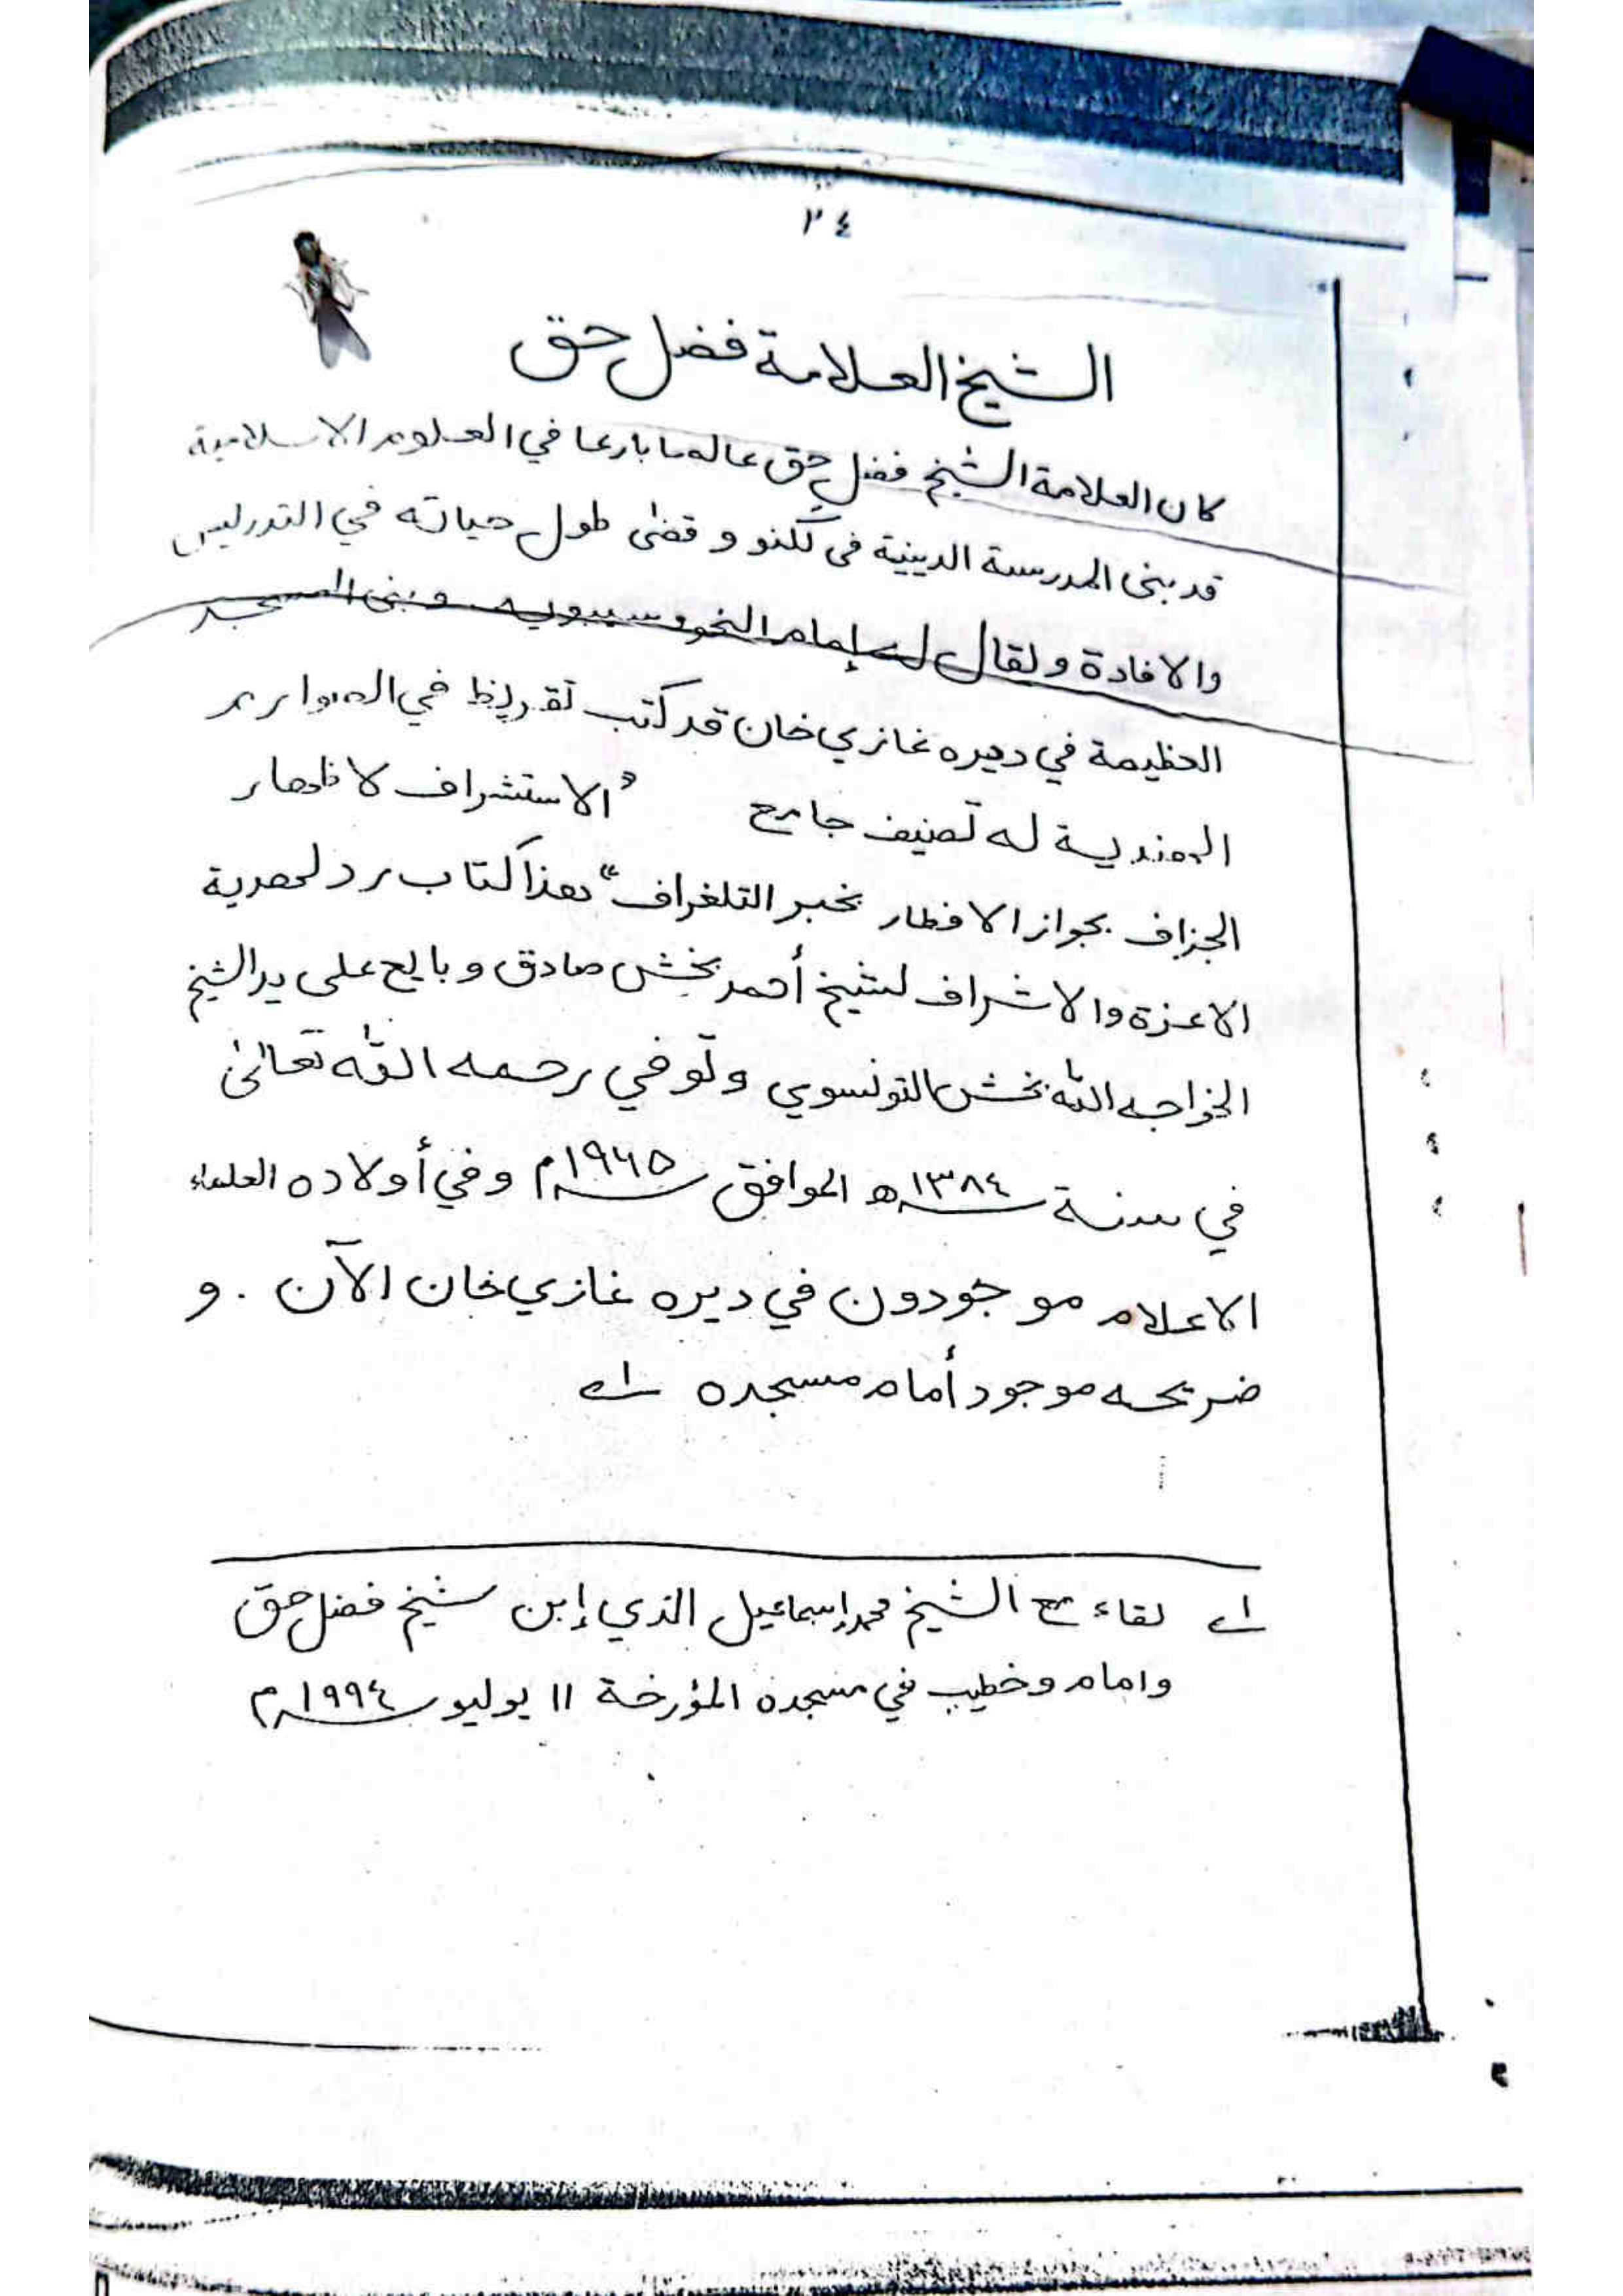 ٢٤
الشيخ العلامة فضل حق
كان العلامة الشيخ فضل حق عالما بارعا في العلوم الاسلامية
قد بنى المدرسة الدينية فى لكنو و قضى طول حياته في التدريس
والافادة ويقال له إمام النحو سيبويه. و بنى المسجد
العظيمة في ديره غازي خان قد كتب تقريظ في الصوارم
الهندية له تصنيف جامع "الاستشراف لاظهار
الجزاف بجواز الافطار بخبر التلغراف" هذا كتاب رد لهدية
الاعزة والاشراف لشيخ أحمد بخش صادق و بايع على يد الشيخ
الخواجه الله بخش التونسوي وتوفي رحمه الله تعالىٰ
في سنة ١٣٨٤ه الموافق ١٩٦٥م وفي أولاده العلماء
الاعلام موجودون في ديره غازي خان الآن . و
ضريحه موجود أمام مسجده ١ے
١ے لقاء مع الشيخ محمد إسماعيل الذي إبن شيخ فضل حق
وامام وخطيب في مسجده المؤرخة ١١ يوليو ١٩٩٤م